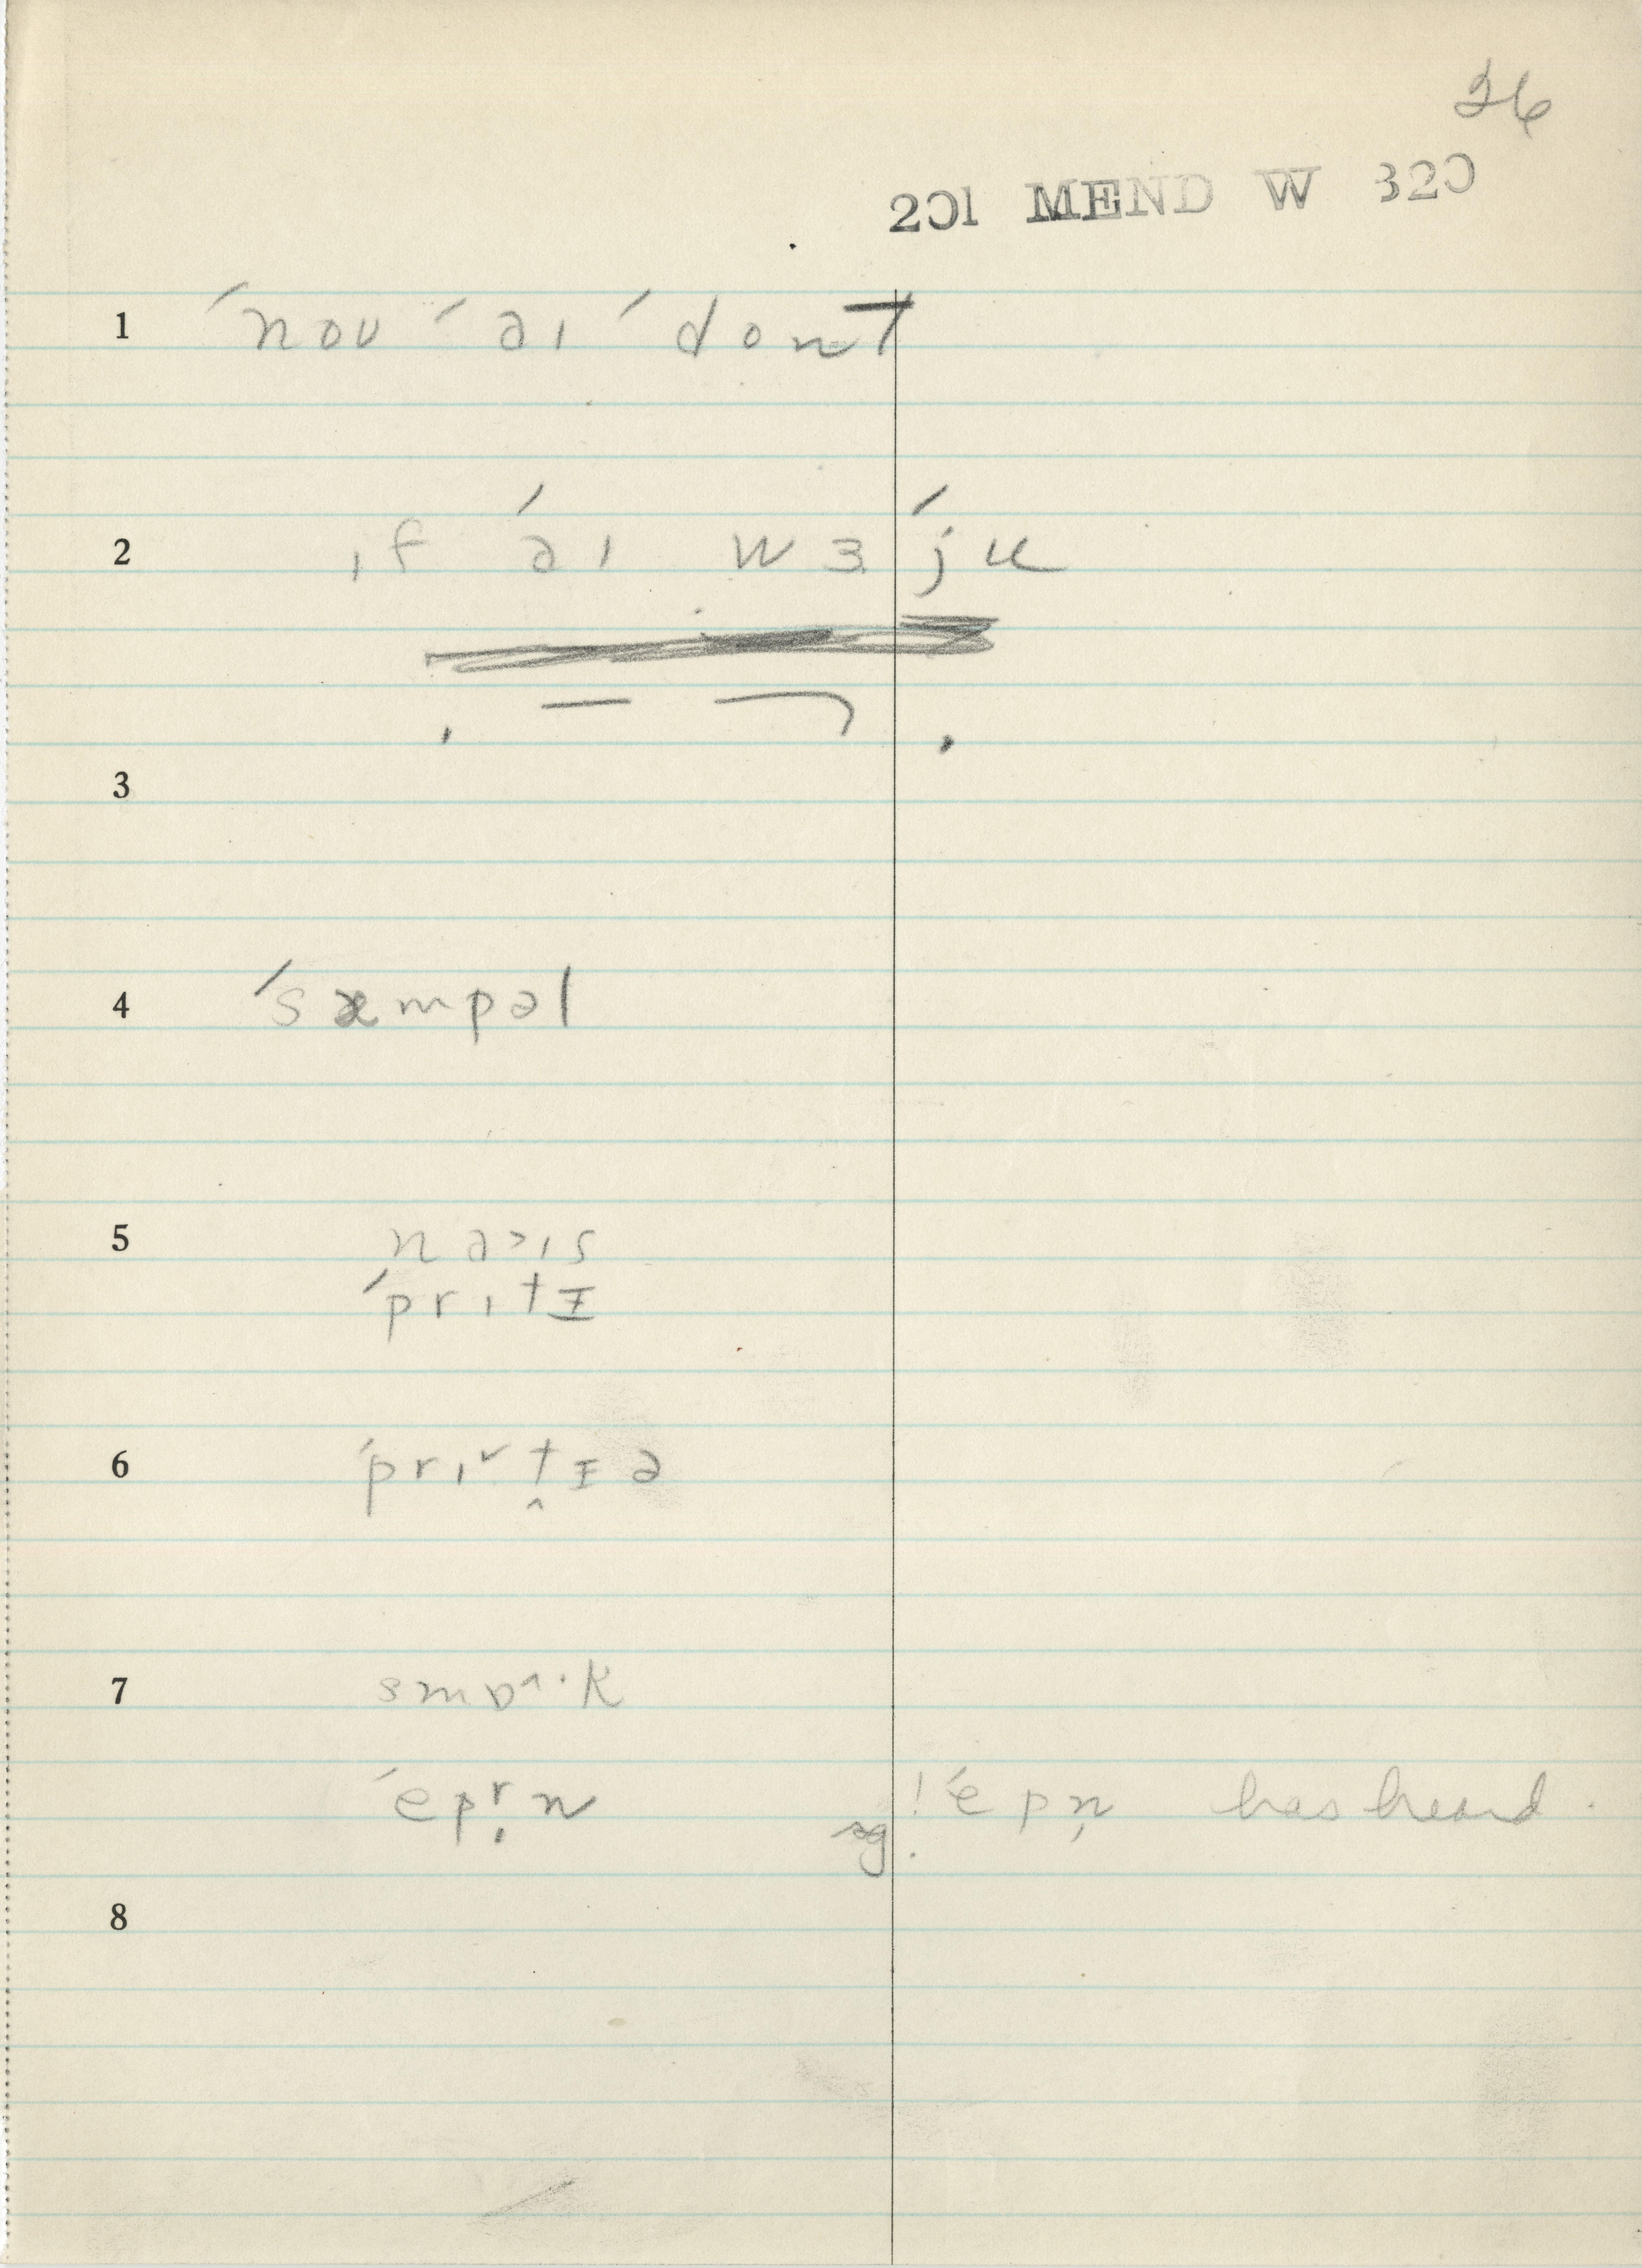 36
201 MEND W 320
1 ˊnoʊ ˊaɪ ˊdonT
2 ɪf ˊaɪ wɜ ˊju
3
4 ˊsæmpəl
5 naɪs
ˊprɪtɪ
6 ˊprɪ˅t̬ɪə
7 smɒ^·k
ˊepr̩n sg. ! ˊepn̩ has heard.
8